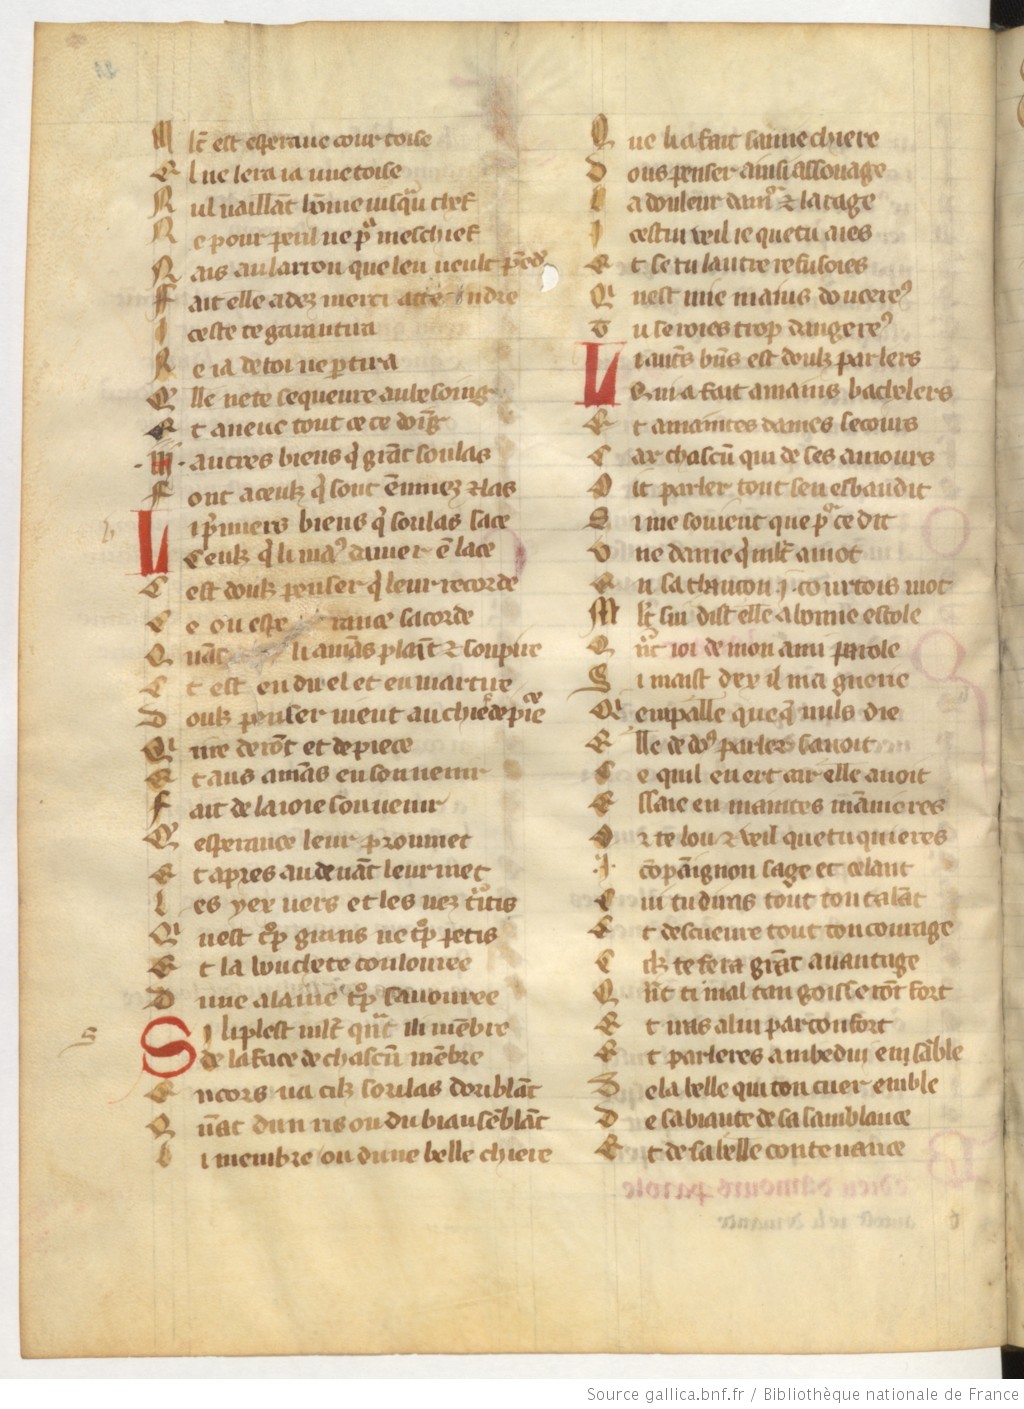 M lt̃ est esperance courtoise
E l ne lera ia une toise
N ul uaillãt hõme iusqu̾ chief
N e pour peril ne pͬ meschief
N ais au larron que len ueult p̃dͬ
F ait elle adez merci attendre
I ceste te garantira
N e ia de toi ne ꝑtira
Q̾ lle ne te sequeure au besoing
E t aueuc tout ce ce doīg
.iii. autres biens q̾ grãt soulas
F ont a ceulz q̾ sont ẽ mes las
L i p̾miers biens q̾ soulas face
C eulz q̾ li maꝰ damer ẽlace
C est doulz penser q̾ leur recorde
C e ou esperance sacorde
Q uãt li amãs plaīt & soupire
E t est en duel et en martire
D oulz penser uient au chief de piece
Q̾ lire deront et depiece
E t aus amãs en son uenir
F ait de la ioie souuenir
Q̾ esperance leur promet
E t apres au deuãt leur met
L es yex uers et les nez t̾itis
Q̾ nest tͦp grans ne tͦp petis
E t la bouchete coulouree
D une alaine tͦp sauouree
S i li plest mlt̃ qñt ili mẽbre
de la face de chascũ mẽbre
E ncors ua cilz soulas doublãt
Q uãt dun ris ou du biau sẽblãt
L i membre ou dune belle chiere
Q ue li a fait samie chiere
D ous penser ainsi assouage
L a douleur damͬ & la rage
I cestui veil ie que tu aies
E t se tu lautre refusoies
Q̾ nest mie mains doucereꝰ
T u seroies trop dangereꝰ
L i autͬs biẽs est doulz parlers
Q̾ ma fait a mains bachelers
E t a maintes dames secours
C ar chascũ qui de ses amours
O it parler tout sen esbaudit
S i me souient que pͬ ce dit
U ne dame q̾ mlt̃ amot
E n sa chancon .i. courtois mot
M lt̃ sui dist elle a bonne escole
Q ñt ioi de mon ami parole
S i maist dex il ma guerie
Q̾ empalle que q̾ nuls die
E lle de doꝰ parler sauoit
C e quil en ert car elle auoit
E ssaie en maintes manieres
O r te lou & veil que tu quieres
.I. cõpaignon sage et celant
C ui tu diras tout ton talãt
E t descueure tout ton courage
C ilz te fera grãt auantage
Q ñt ti mal tangoisserõt fort
E t iras a lui par confort
E t parleres ambedui ensẽble
D e la belle qui ton cuer emble
D e sa biaute de sa samblance
E t de sa belle contenance
Source gallica.bnf.fr / Bibliothèque nationale de France